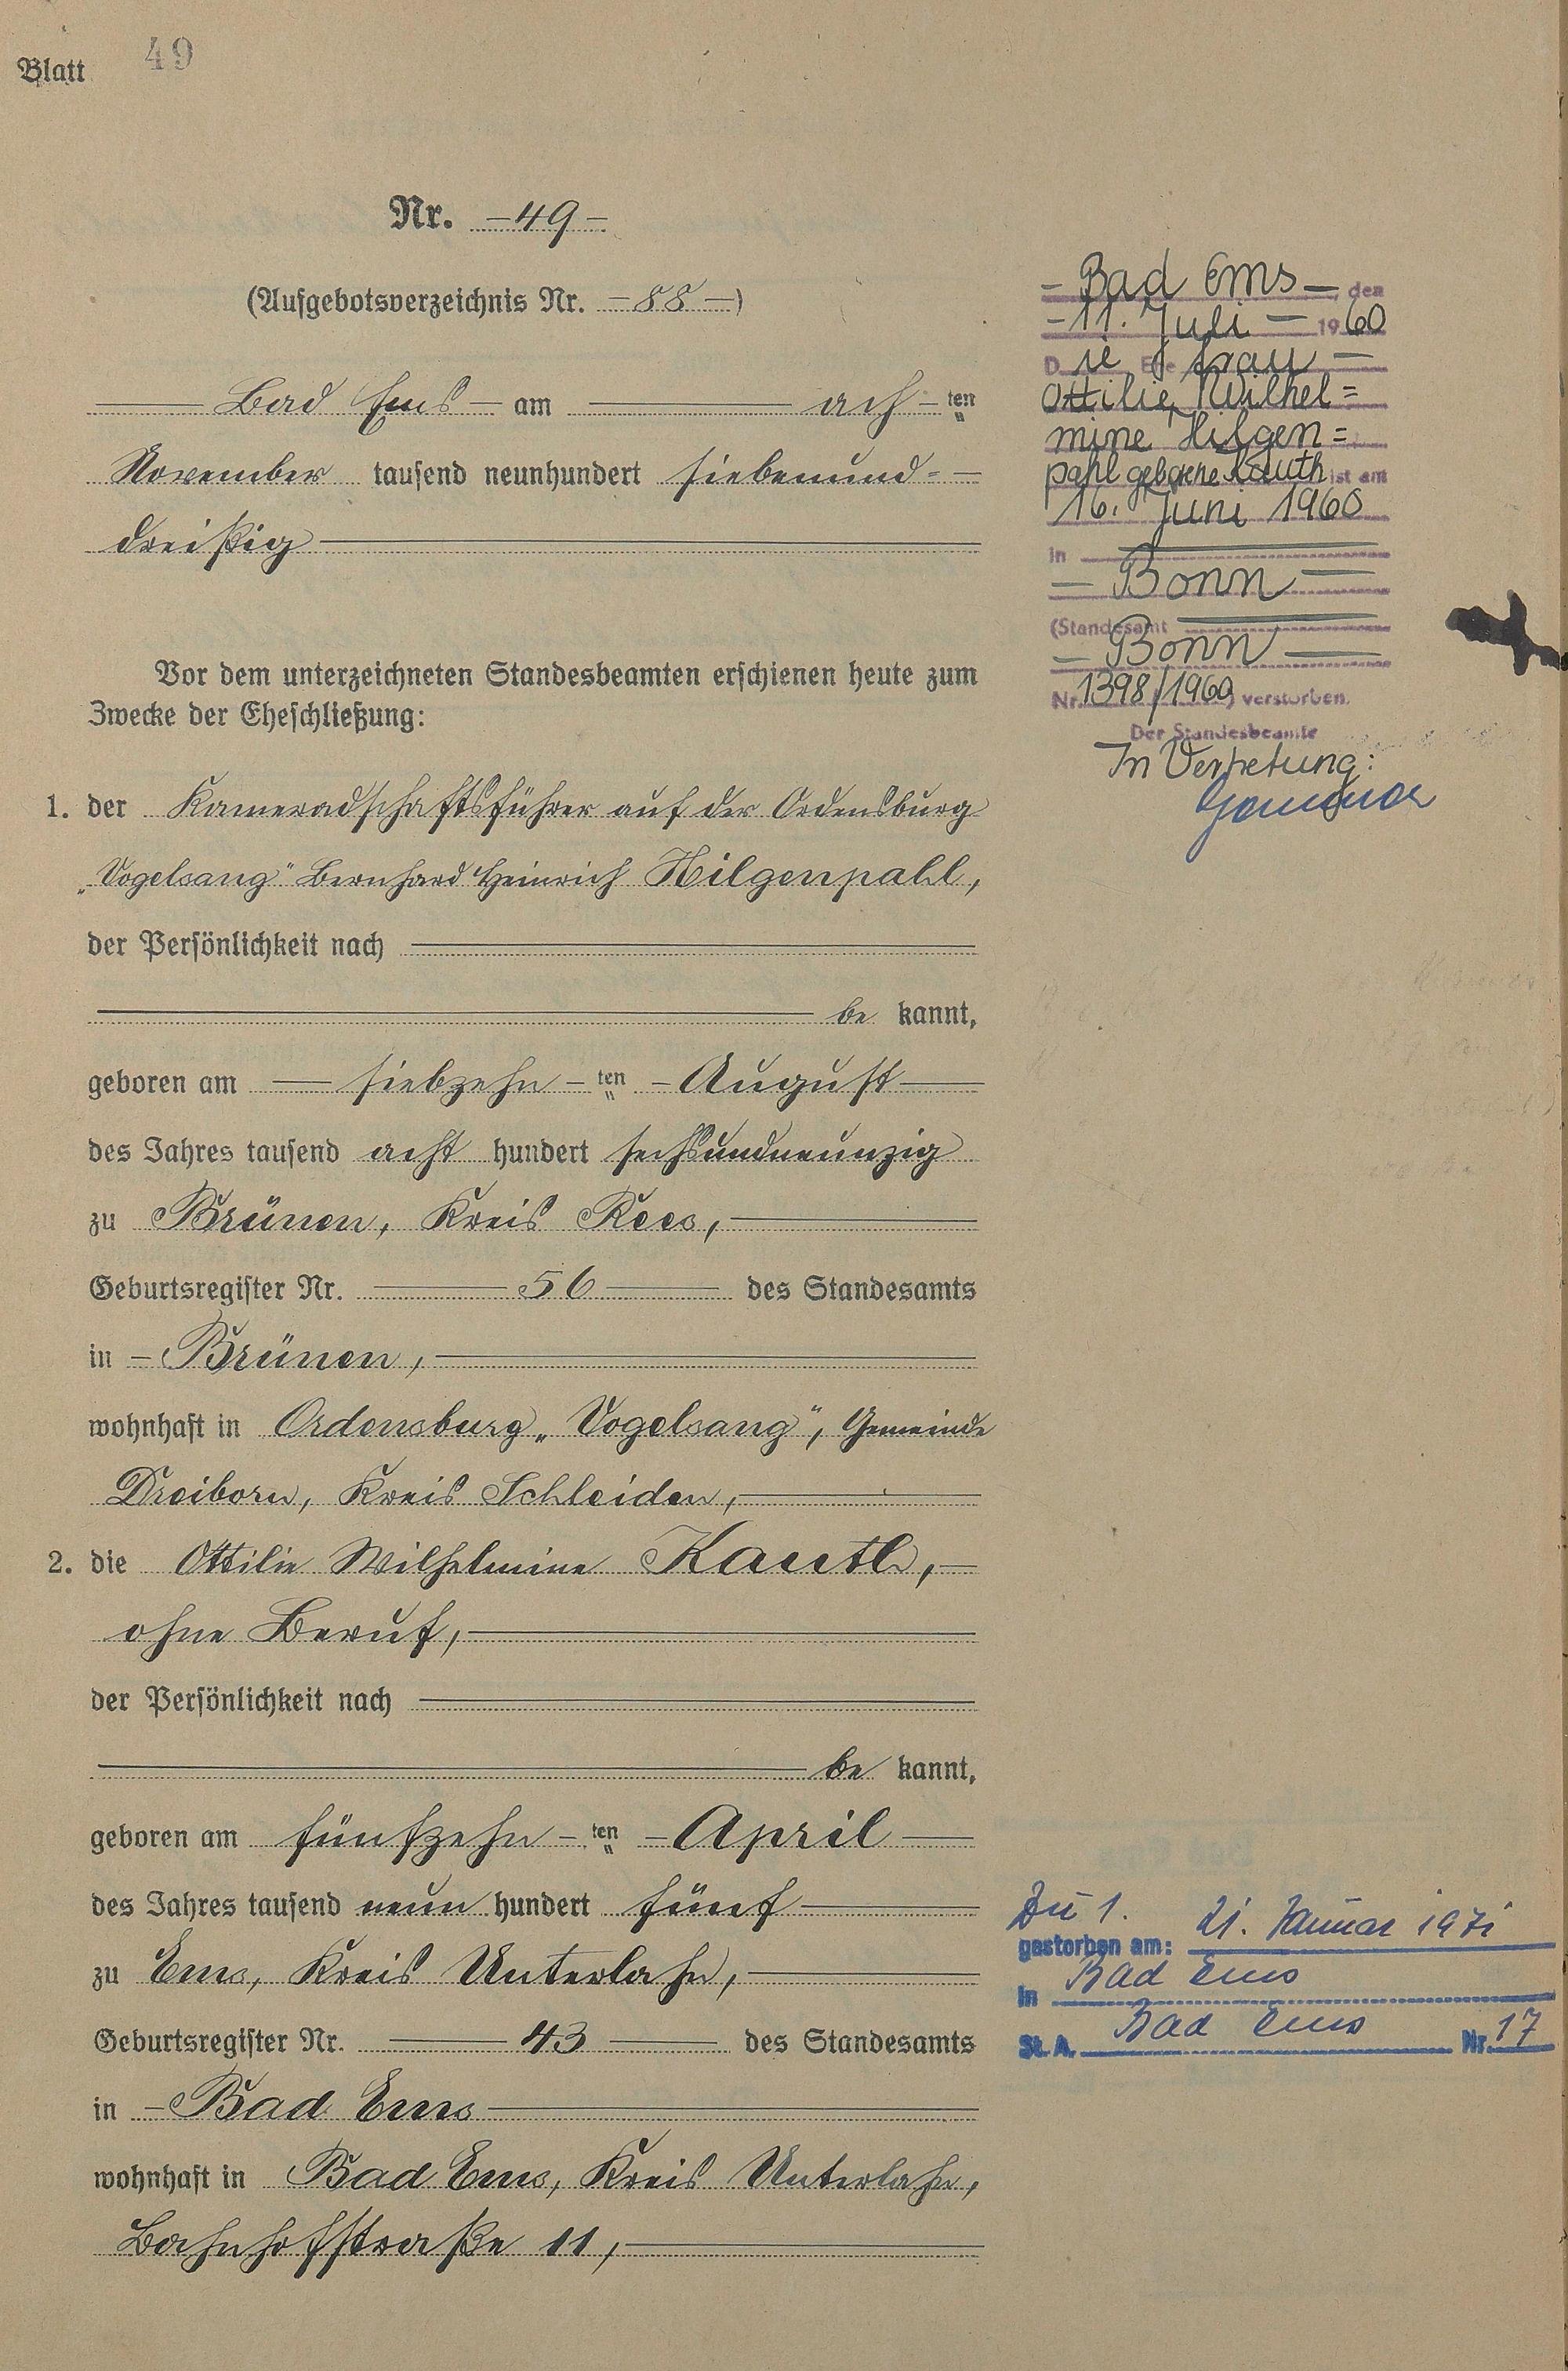 Blatt 49
Nr. – 49 –
(Aufgebotsverzeichnis Nr. – 88 –)
Bad Ems – am ach – ten
November tausend neunhundert siebenund=
dreißig
Vor dem unterzeichneten Standesbeamten erschienen heute zum
Zwecke der Eheschließung:
1. der Kameradschaftsführer auf der Ordensburg
„Vogelsang" Bernhard Heinrich Hilgenpahl,
der Persönlichkeit nach
be kannt,
geboren am siebzehn – ten – August
des Jahres tausend acht hundert sechsundneunzig
zu Brünen, Kreis Rees,
Geburtsregister Nr. 56 des Standesamts
in – Brünen,
wohnhaft in Ordensburg „Vogelsang", Gemeinde
Dreiborn, Kreis Schleiden,
2. die Ottilie Wilhelmine Kauth,
ohne Beruf,
der Persönlichkeit nach
be kannt,
geboren am fünfzehn – ten – April
des Jahres tausend neun hundert fünf
zu Ems, Kreis Unterlahn,
Geburtsregister Nr. 43 des Standesamts
in – Bad Ems
wohnhaft in Bad Ems, Kreis Unterlahn,
Bahnhofstraße 11,
– Bad Ems –, den
– 11. Juli – 1960
Die Ehefrau –
Ottilie Wilhel=
mine Hilgen=
pahl geborene Kauth ist am
16. Juni 1960
in
– Bonn –
(Standesamt
– Bonn –
Nr. 1398/1960) verstorben.
Der Standesbeamte
In Vertretung:
Zu 1.
gestorben am: 21. Januar 1971
in Bad Ems
St. A. Bad Ems Nr. 17